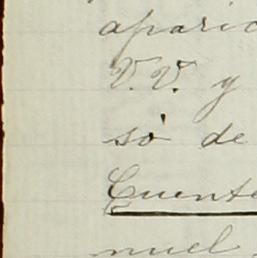 aparic
V.V. y
só de
Cuente
nuel